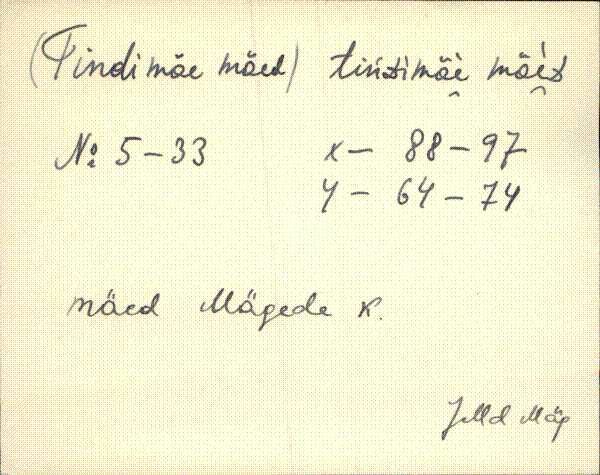 (Tindimäe mäed) tińdimäè mäèd
№ 5-33 x - 88-97
y - 64-74
mäed Mägede k.